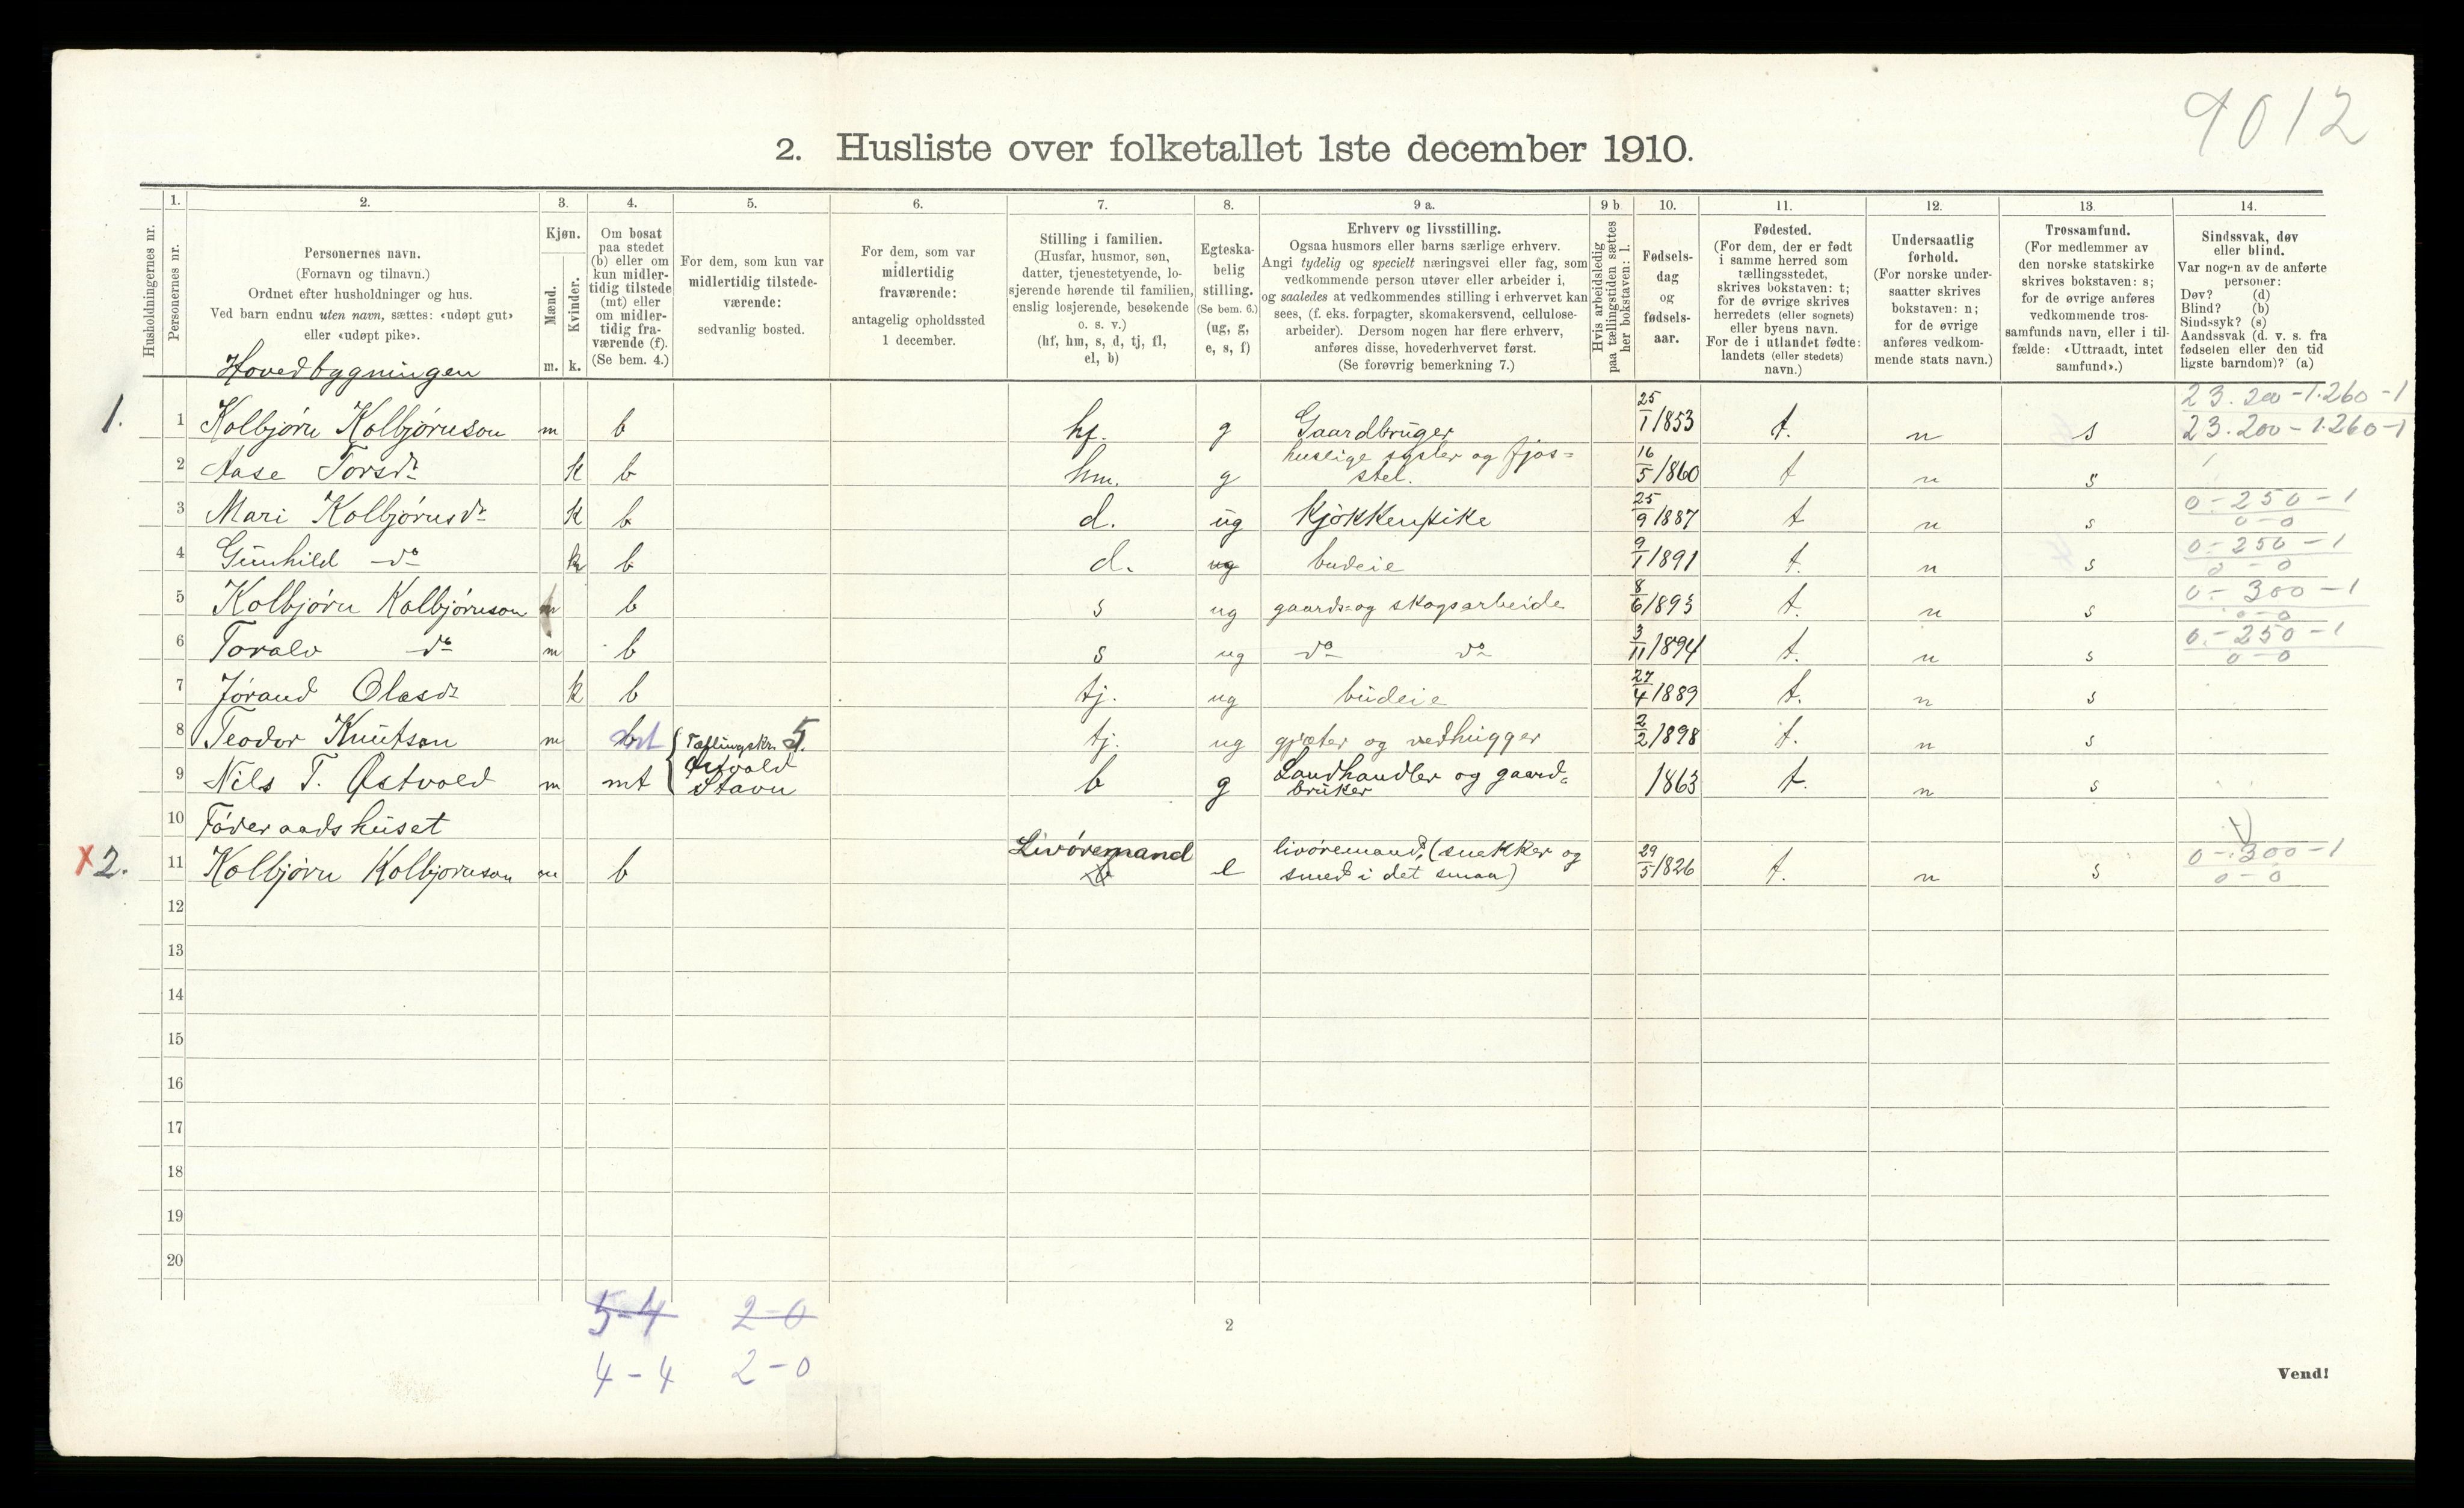 9012
2. Husliste over folketallet 1ste december 1910.
1. 2. 3. 4. 5. 6. 7. 8. 9 a. 9 b. 10. 11. 12. 13. 14.
Husholdningernes nr.
Personernes nr.
Personernes navn.
(Fornavn og tilnavn.)
Ordnet efter husholdninger og hus.
Ved barn endnu uten navn, sættes: «udøpt gut»
eller «udøpt pike».
Kjøn.
Mænd.
Kvinder.
m. k.
Om bosat
paa stedet
(b) eller om
kun midler-
tidig tilstede
(mt) eller
om midler-
tidig fra-
værende (f).
(Se bem. 4.)
For dem, som kun var
midlertidig tilstede-
værende:
sedvanlig bosted.
For dem, som var
midlertidig
fraværende:
antagelig opholdssted
1 december.
Stilling i familien.
(Husfar, husmor, søn,
datter, tjenestetyende, lo-
sjerende hørende til familien,
enslig losjerende, besøkende
o. s. v.)
(hf, hm, s, d, tj, fl,
el, b)
Egteska-
belig
stilling.
(Se bem. 6.)
(ug, g,
e, s, f)
Erhverv og livsstilling.
Ogsaa husmors eller barns særlige erhverv.
Angi tydelig og specielt næringsvei eller fag, som
vedkommende person utøver eller arbeider i,
og saaledes at vedkommendes stilling i erhvervet kan
sees, (f. eks. forpagter, skomakersvend, cellulose-
arbeider). Dersom nogen har flere erhverv,
anføres disse, hovederhvervet først.
(Se forøvrig bemerkning 7.)
Hvis arbeidsledig
paa tællingstiden sættes
her bokstaven: l.
Fødsels-
dag
og
fødsels-
aar.
Fødested.
(For dem, der er født
i samme herred som
tællingsstedet,
skrives bokstaven: t;
for de øvrige skrives
herredets (eller sognets)
eller byens navn.
For de i utlandet fødte:
landets (eller stedets)
navn.)
Undersaatlig
forhold.
(For norske under-
saatter skrives
bokstaven: n;
for de øvrige
anføres vedkom-
mende stats navn.)
Trossamfund.
(For medlemmer av
den norske statskirke
skrives bokstaven: s;
for de øvrige anføres
vedkommende tros-
samfunds navn, eller i til-
fælde: «Uttraadt, intet
samfund».)
Sindssvak, døv
eller blind.
Var nogen av de anførte
personer:
Døv? (d)
Blind? (b)
Sindssyk? (s)
Aandssvak (d. v. s. fra
fødselen eller den tid
ligste barndom)? (a)
Hovedbygningen
23.200-1.260-1
1. 1 Kolbjørn Kolbjørnson m b hf. g Gaardbruger 25/1 1853 t. n s 23.200-1.260-1
2 Aase Torsdr k b hm. g huslige sysler og fjøs=
stel. 16/5 1860 t n s
3 Mari Kolbjørnsdr k b d. ug Kjøkkenpike 25/9 1887 t n s 0-250-1
0-0
4 Gunhild do k b d. ug budeie 9/1 1891 t. n s 0-250-1
0-0
5 Kolbjørn Kolbjørnson m b s ug gaards=og skogsarbeide 8/6 1893 t. n s 0-300-1
0-0
6 Toralv do m b s ug do do 3/11 1894 t. n s 0-250-1
0-0
7 Jørand Olasdr k b tj. ug budeie 27/4 1889 t. n s
8 Teodor Knutson m mt Tællingskr. 5. tj. ug gjæter og vedhugger 2/2 1898 t. n s
9 Nils T. Østvold m mt Østvold
Stavn b g Landhandler og gaard=
bruker 1863 t. n s
10 Føderaadshuset
X 2. 11 Kolbjørn Kolbjørnson m b Livøremand b e livøremand, (snekker og
smed i det smaa) 29/5 1826 t. n s 0-300-1
0-0
12
13
14
15
16
17
18
19
20
5-4 2-0
2
4-4 2-0
Vend!